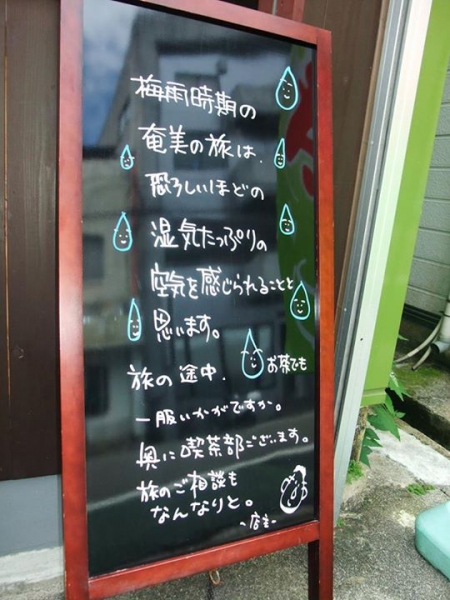 梅雨時期の
奄美の旅は、
恐ろしいほどの
湿気たっぷりの
空気を感じられることと
思います。
旅の途中、お茶でも
一服いかがですか。
奥に喫茶部ございます。
旅のご相談も
なんなりと。
-店主-